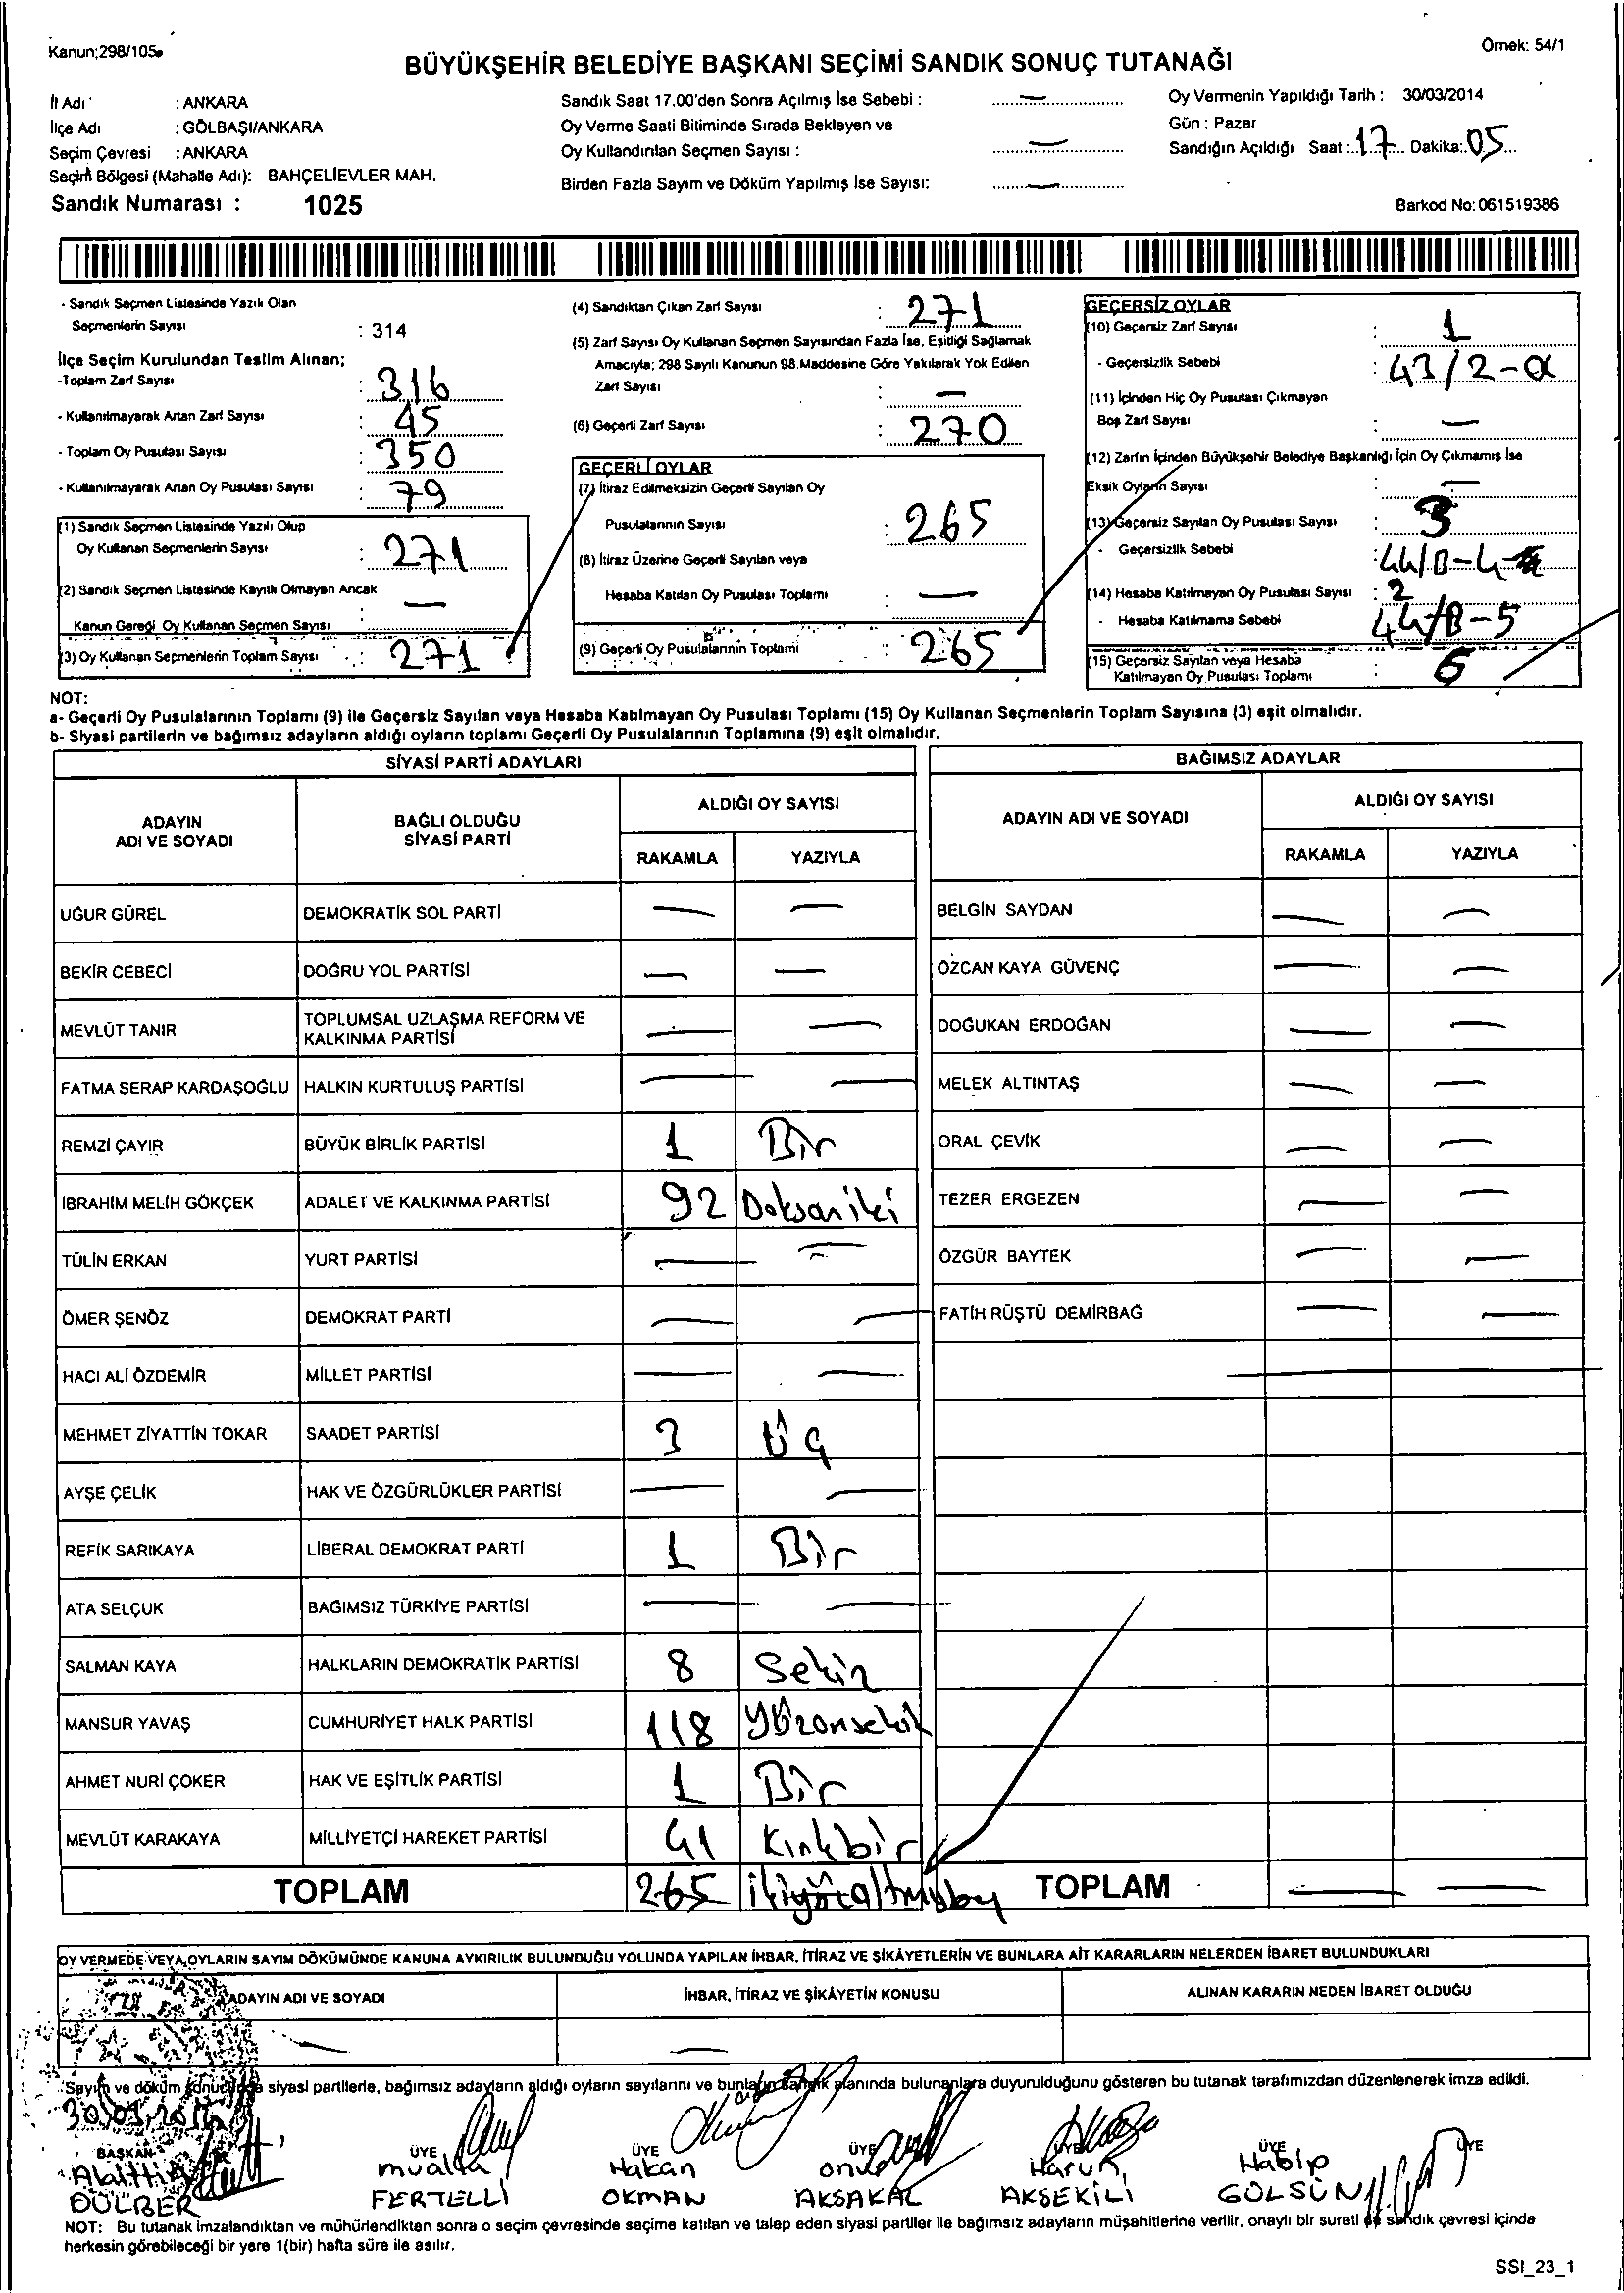 Kanun;298/105
Örnek: 54/1
BÜYÜKŞEHİR BELEDİYE BAŞKANI SEÇİMİ SANDIK SONUÇ TUTANAĞI
İl Adı : ANKARA
İlçe Adı : GÖLBAŞI/ANKARA
Seçim Çevresi : ANKARA
Seçim Bölgesi (Mahalle Adı): BAHÇELİEVLER MAH.
Sandık Numarası : 1025
Sandık Saat 17.00'den Sonra Açılmış İse Sebebi : —
Oy Verme Saati Bitiminde Sırada Bekleyen ve
Oy Kullandırılan Seçmen Sayısı : —
Birden Fazla Sayım ve Döküm Yapılmış İse Sayısı: —
Oy Vermenin Yapıldığı Tarih : 30/03/2014
Gün : Pazar
Sandığın Açıldığı Saat : 17 Dakika: 05
Barkod No: 061519386
- Sandık Seçmen Listesinde Yazılı Olan
Seçmenlerin Sayısı : 314
İlçe Seçim Kurulundan Teslim Alınan;
-Toplam Zarf Sayısı : 316
- Kullanılmayarak Artan Zarf Sayısı : 45
- Toplam Oy Pusulası Sayısı : 350
- Kullanılmayarak Artan Oy Pusulası Sayısı : 79
(1) Sandık Seçmen Listesinde Yazılı Olup
Oy Kullanan Seçmenlerin Sayısı : 271
(2) Sandık Seçmen Listesinde Kayıtlı Olmayan Ancak
Kanun Gereği Oy Kullanan Seçmen Sayısı : —
(3) Oy Kullanan Seçmenlerin Toplam Sayısı : 271
(4) Sandıktan Çıkan Zarf Sayısı : 271
(5) Zarf Sayısı Oy Kullanan Seçmen Sayısından Fazla İse, Eşitliği Sağlamak
Amacıyla; 298 Sayılı Kanunun 98.Maddesine Göre Yakılarak Yok Edilen
Zarf Sayısı : —
(6) Geçerli Zarf Sayısı : 270
GEÇERLİ OYLAR
(7) İtiraz Edilmeksizin Geçerli Sayılan Oy
Pusulalarının Sayısı : 265
(8) İtiraz Üzerine Geçerli Sayılan veya
Hesaba Katılan Oy Pusulası Toplamı : —
(9) Geçerli Oy Pusulalarının Toplamı : 265
GEÇERSİZ OYLAR
(10) Geçersiz Zarf Sayısı : 1
- Geçersizlik Sebebi : 43/2-a
(11) İçinden Hiç Oy Pusulası Çıkmayan
Boş Zarf Sayısı : —
(12) Zarfın İçinden Büyükşehir Belediye Başkanlığı İçin Oy Çıkmamış İse
Eksik Oyların Sayısı : —
(13) Geçersiz Sayılan Oy Pusulası Sayısı : 3
- Geçersizlik Sebebi : 44/B-4
(14) Hesaba Katılmayan Oy Pusulası Sayısı : 2
- Hesaba Katılmama Sebebi 44/B-5
(15) Geçersiz Sayılan veya Hesaba
Katılmayan Oy Pusulası Toplamı : 6
NOT:
a- Geçerli Oy Pusulalarının Toplamı (9) ile Geçersiz Sayılan veya Hesaba Katılmayan Oy Pusulası Toplamı (15) Oy Kullanan Seçmenlerin Toplam Sayısına (3) eşit olmalıdır.
b- Siyasi partilerin ve bağımsız adayların aldığı oyların toplamı Geçerli Oy Pusulalarının Toplamına (9) eşit olmalıdır.
SİYASİ PARTİ ADAYLARI
ADAYIN ADI VE SOYADI BAĞLI OLDUĞU SİYASİ PARTİ ALDIĞI OY SAYISI
RAKAMLA YAZIYLA
UĞUR GÜREL DEMOKRATİK SOL PARTİ — —
BEKİR CEBECİ DOĞRU YOL PARTİSİ — —
MEVLÜT TANIR TOPLUMSAL UZLAŞMA REFORM VE KALKINMA PARTİSİ — —
FATMA SERAP KARDAŞOĞLU HALKIN KURTULUŞ PARTİSİ — —
REMZİ ÇAYIR BÜYÜK BİRLİK PARTİSİ 1 Bir
İBRAHİM MELİH GÖKÇEK ADALET VE KALKINMA PARTİSİ 92 Doksaniki
TÜLİN ERKAN YURT PARTİSİ — —
ÖMER ŞENÖZ DEMOKRAT PARTİ — —
HACI ALİ ÖZDEMİR MİLLET PARTİSİ — —
MEHMET ZİYATTİN TOKAR SAADET PARTİSİ 3 Üç
AYŞE ÇELİK HAK VE ÖZGÜRLÜKLER PARTİSİ — —
REFİK SARIKAYA LİBERAL DEMOKRAT PARTİ 1 Bir
ATA SELÇUK BAĞIMSIZ TÜRKİYE PARTİSİ — —
SALMAN KAYA HALKLARIN DEMOKRATİK PARTİSİ 8 Sekiz
MANSUR YAVAŞ CUMHURİYET HALK PARTİSİ 118 Yüzonsekiz
AHMET NURİ ÇOKER HAK VE EŞİTLİK PARTİSİ 1 Bir
MEVLÜT KARAKAYA MİLLİYETÇİ HAREKET PARTİSİ 41 Kırkbir
TOPLAM 265
BAĞIMSIZ ADAYLAR
ADAYIN ADI VE SOYADI ALDIĞI OY SAYISI
RAKAMLA YAZIYLA
BELGİN SAYDAN — —
ÖZCAN KAYA GÜVENÇ — —
DOĞUKAN ERDOĞAN — —
MELEK ALTINTAŞ — —
ORAL ÇEVİK — —
TEZER ERGEZEN — —
ÖZGÜR BAYTEK — —
FATİH RÜŞTÜ DEMİRBAĞ — —
TOPLAM — —
OY VERMEDE VEYA OYLARIN SAYIM DÖKÜMÜNDE KANUNA AYKIRILIK BULUNDUĞU YOLUNDA YAPILAN İHBAR, İTİRAZ VE ŞİKÂYETLERİN VE BUNLARA AİT KARARLARIN NELERDEN İBARET BULUNDUKLARI
ADAYIN ADI VE SOYADI İHBAR, İTİRAZ VE ŞİKÂYETİN KONUSU ALINAN KARARIN NEDEN İBARET OLDUĞU
— —
Sayım ve döküm sonucunda siyasi partilerle, bağımsız adayların aldığı oyların sayılarını ve bunların sandık alanında bulunanlara duyurulduğunu gösteren bu tutanak tarafımızdan düzenlenerek imza edildi.
BAŞKAN ÜYE ÜYE ÜYE ÜYE ÜYE ÜYE
Mualla Hakan Onur Harun Habip
DÜLBER FERTELLİ OKMAN AKSAKAL AKSEKİLİ GÜLSÜN
NOT: Bu tutanak imzalandıktan ve mühürlendikten sonra o seçim çevresinde seçime katılan ve talep eden siyasi partiler ile bağımsız adayların müşahitlerine verilir, onaylı bir sureti de sandık çevresi içinde
herkesin görebileceği bir yere 1(bir) hafta süre ile asılır.
SSI_23_1